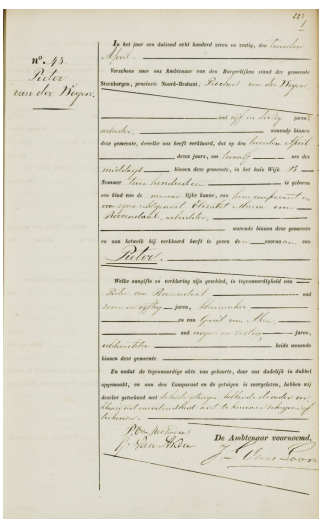 N°. 43.
Pieter
van der Wegen.
In het jaar een duizend acht honderd zeven en zestig, den tweeden
April
Verscheen voor ons Ambtenaar van den Burgerlijken stand der gemeente
Steenbergen, provincie Noord-Brabant, van der Wegen
oud vijf en dertig jaren,
arbeider, wonende binnen
deze gemeente, dewelke ons heeft verklaard, dat op den tweeden April
dezes jaars, om ure des
middags binnen deze gemeente, in het huis Wijk B
Nommer twee honderd is geboren
een kind van de kunne, van hem comparant en
van zijne echtgenoot Elizabet Maria van
Roosendaal, arbeidster,
wonende binnen deze gemeente
en aan hetwelk hij verklaard heeft te geven den voornaam van
Pieter.
Welke aangifte en verklaring zijn geschied, in tegenwoordigheid van
Pieter van Roosendaal oud
jaren,
en van Gerrit van Aken,
oud negen en zestig jaren,
veldwachter beide wonende
binnen deze gemeente.
En omdat de tegenwoordige akte van geboorte, door ons dadelijk in dubbel
opgemaakt, en aan den Comparant en de getuigen is voorgelezen, hebben wij
dezelve geteekend met de beide getuigen, hebbende de vader verklaard
niet te kunnen schrijven of
teekenen.
G. van Aken
De Ambtenaar voornoemd,
J. van Loon